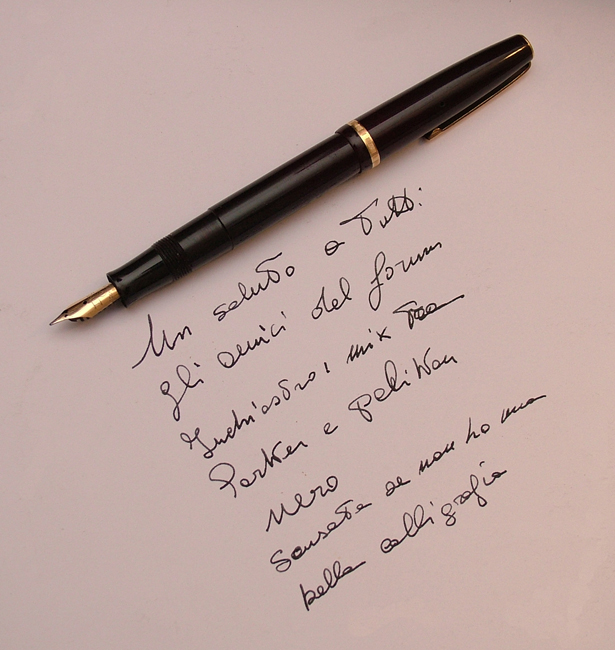 Un saluto a Tutti
gli amici del forum
Inchiostro: mix Tra
Parker e Pelikan
nero
Scusate se non ho una
bella calligrafia